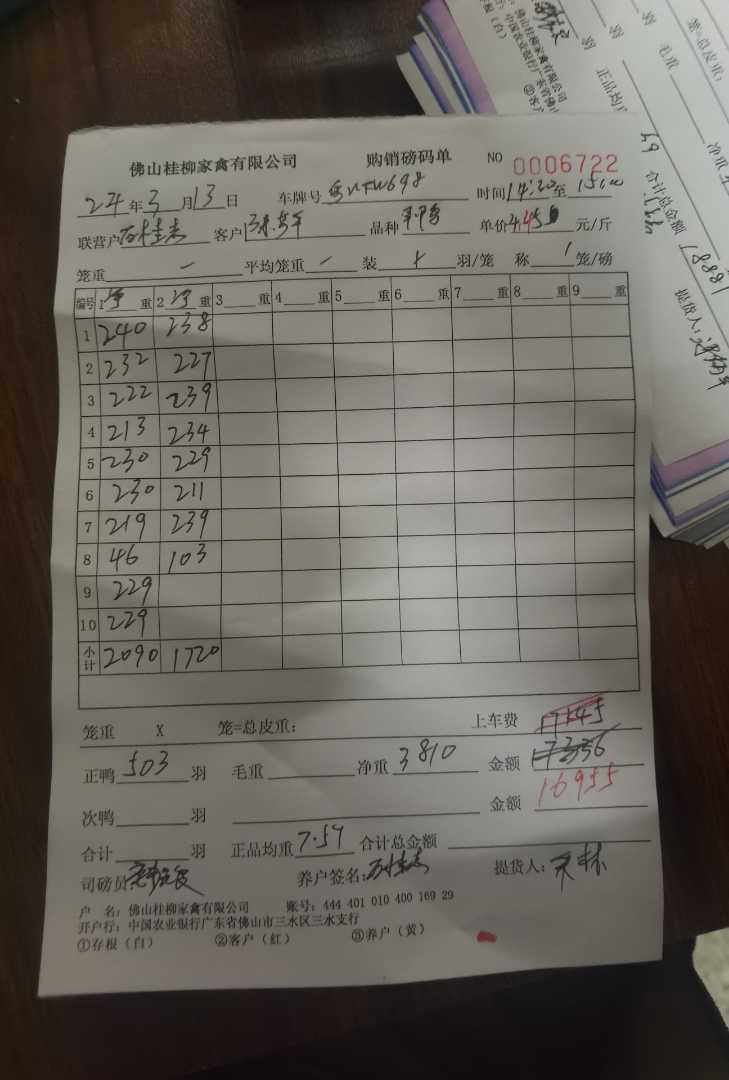 佛山桂柳家禽有限公司 购销磅码单 NO 0006722
24年3月13日 车牌号 698 时间14:20至15:00
联营户 客户 品种 单价4.45元/斤
笼重 — 平均笼重 — 装 羽/笼 称 1 笼/磅
编号 1净重 2净重 3重 4重 5重 6重 7重 8重 9重
1 240 238
2 232 227
3 222 239
4 213 234
5 230 229
6 230 211
7 219 239
8 46 103
9 229
10 229
小计 2090 1720
笼重 X 笼=总皮重: 上车费 17145
正鸭503羽 毛重 净重3810 金额17336
次鸭 羽 金额16955
合计 羽 正品均重7.57 合计总金额
司磅员 养户签名: 提货人:
户 名: 佛山桂柳家禽有限公司 账号: 444 401 010 400 169 29
开户行: 中国农业银行广东省佛山市三水区三水支行
①存根（白） ②客户（红） ③养户（黄）
羽 毛重 净重
羽 正品均
笼=总皮重:
合计总金额
提货人:
佛山桂柳家禽有限公司
中国农业银行广东省佛
②客
根（白）